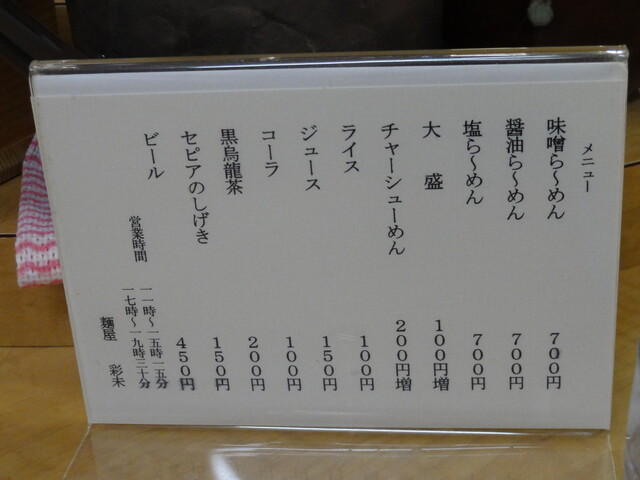 メニュー
味噌ら〜めん 700円
醤油ら〜めん 700円
塩ら〜めん 700円
大 盛 100円増
チャーシューめん 200円増
ライス 100円
ジュース 150円
コーラ 100円
黒烏龍茶 200円
セピアのしげき 150円
ビール 450円
営業時間 一一時〜一五時一五分
一七時〜一九時三十分
麺屋 彩未